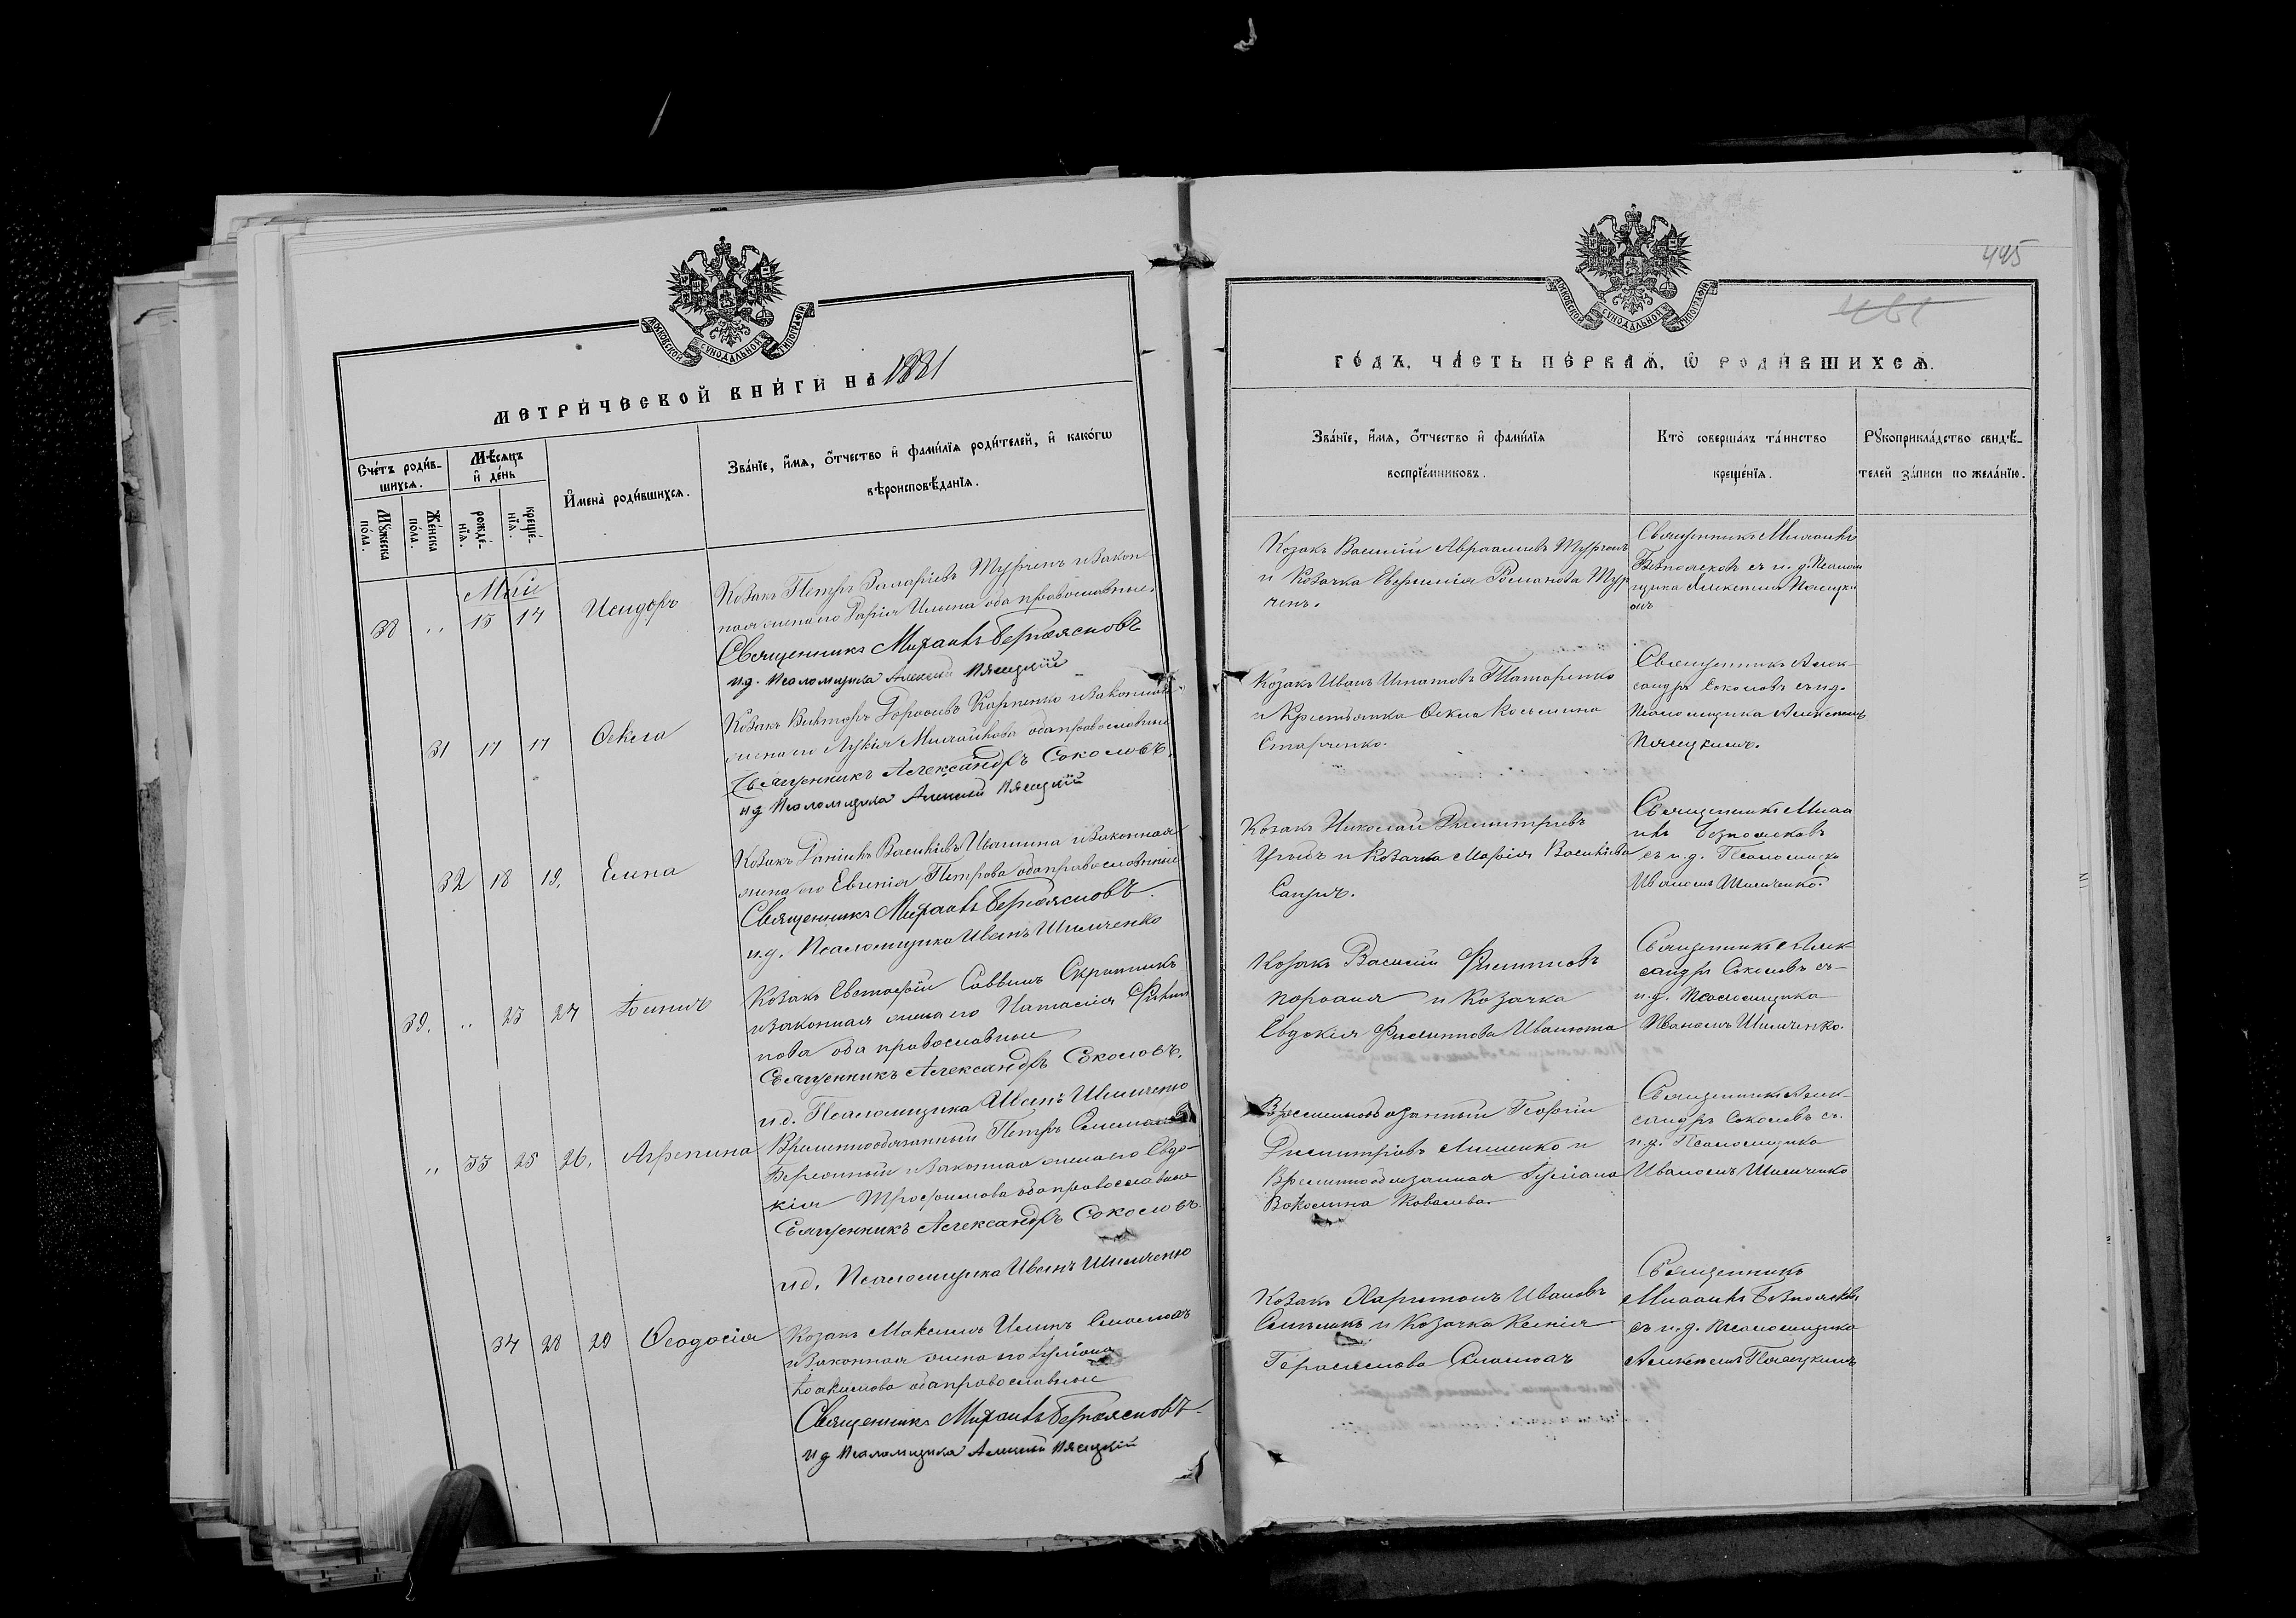 МОСКОВСКОЙ СѴНОДАЛЬНОЙ ТИПОГРАФІИ
МЕТРИЧЕСКОЙ КНИГИ НА 1881
Счетъ родившихся.
Мѣсяцъ и день
Имена родившихся.
Званіе, имя, отчество и фамилія родителей, и какогω
вѣроисповѣданія.
Мужеска пола.
Женска пола.
рожденія.
крещенія.
Май
38 " 13 14 Исидоръ
Козакъ Петръ Турченъ и закон
ная жена его Дарія Ильина оба православные.
Священникъ Михаилъ Безпоясковъ
и.д. Псаломщика Алексій Пясецкій
31 17 17 Ѳекла
Козакъ Викторъ Карпенко и законная
жена его Лукія Михайлова оба православные
Священникъ Александръ Соколовъ.
и д Псаломщика Алексій Пясецкій
32 18 19. Елена
Козакъ Даніилъ Васильевъ Ивашина и законная
жена его Евгенія Петрова оба православные
Священникъ Михаилъ Безпоясковъ.
и.д. Псаломщика Иванъ Шимченко
39. " 23 24
Козакъ Евстафій Саввинъ Скрипникъ
и законная жена его Наталія Филип
пова оба православные
Священникъ Александръ Соколовъ.
и.д. Псаломщика Иванъ Шимченко
" 33 25 26. Агрепина
Временнообязанный Петръ
и законная жена его Евдо-
кія Трофимова оба православные
Священникъ Александръ Соколовъ.
и.д. Псаломщика Иванъ Шимченко
34 28 29 Ѳеодосія
Козакъ Максимъ Ильинъ
и законная жена его Іуліана
Іоакимова оба православные
Священникъ Михаилъ Безпоясковъ.
и д Псаломщика Алексій Пясецкій
445
МОСКОВСКОЙ СѴНОДАЛЬНОЙ ТИПОГРАФІИ
ГОДЪ, ЧАСТЬ ПЕРВАЯ, Ѡ РОДИВШИХСЯ.
Званіе, имя, отчество и фамилія
воспріемниковъ.
Кто совершалъ таинство
крещенія.
Рукоприкладство свидѣ-
телей записи по желанію.
Козакъ Василій Авраамовъ Турченъ
и Козачка Евфимія Романова Тур
ченъ.
Священникъ Михаилъ
Безпоясковъ съ и.д. Псалом
щика Алексіемъ Пясецки
мъ
Козакъ Иванъ Игнатовъ Татаренко
и Крестьянка Ѳекла Косьмина
Старченко.
Священникъ Алек-
сандръ Соколовъ съ и.д.
Псаломщика Алексіемъ
Пясецкимъ.
Козакъ Николай Димитріевъ
и Козачка Марія Васильева
Священникъ Миха
илъ Безпоясковъ
съ и.д. Псаломщика
Иваномъ Шимченко.
Козакъ Василій Филипповъ
и Козачка
Евдокія Филиппова Иванюта
Священникъ Алек-
сандръ Соколовъ съ-
и.д. Псаломщика
Иваномъ Шимченко.
Временнообязанный Георгій
Димитріевъ и
Временнообязанная Іуліана
Ковалева.
Священникъ Алек-
сандръ Соколовъ съ.
и.д. Псаломщика
Иваномъ Шимченко
Козакъ Харитонъ Ивановъ
и Козачка Ксенія
Герасимова
Священникъ
Михаилъ Безпоясковъ
съ и.д. Псаломщика
Алексіемъ Пясецкимъ